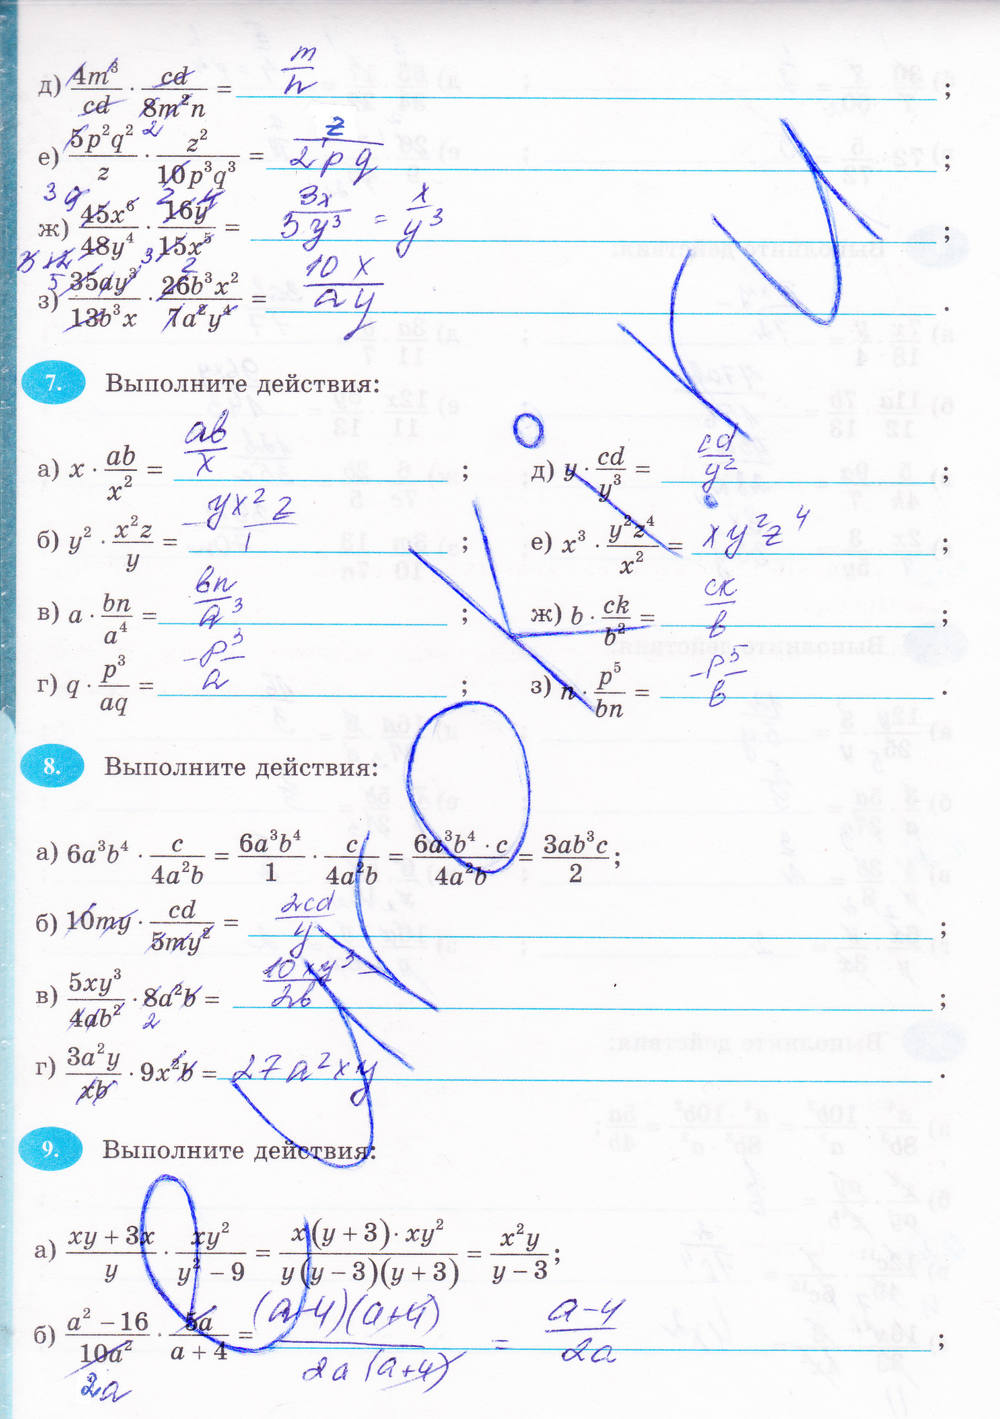 д) 4m³/cd · cd/8m²n = m/n ;
2
е) 5p²q²/z · z²/10p³q³ = z/2pq ;
ж) 45x⁶/48y⁴ · 16y/15x⁵ = 3x/3y³ = x/y³ ;
з) 35ay³/13b³x · 26b³x²/7a²y⁴ = 10x/ay .
7. Выполните действия:
а) x · ab/x² = ab/x ; д) y · cd/y³ = cd/y² ;
б) y² · x²z/y = yx²z/1 ; е) x³ · y²z⁴/x² = xy²z⁴ ;
в) a · bn/a⁴ = bn/a³ ; ж) b · ck/b² = ck/b ;
г) q · p³/aq = p³/a ; з) n · p⁵/bn = p⁵/b .
8. Выполните действия:
а) 6a³b⁴ · c/4a²b = 6a³b⁴/1 · c/4a²b = 6a³b⁴ · c/4a²b = 3ab³c/2 ;
б) 10my · cd/5my² = 2cd/y ;
в) 5xy³/4ab² · 8a²b = 10xy³/2b ;
2
г) 3a²y/xb · 9x²b = 27a²xy .
9. Выполните действия:
а) xy + 3x/y · xy²/y² − 9 = x(y + 3) · xy²/y(y − 3)(y + 3) = x²y/y − 3 ;
б) a² − 16/10a² · 5a/a + 4 = (a-4)(a+4)/2a(a+4) = a-4/2a ;
2a